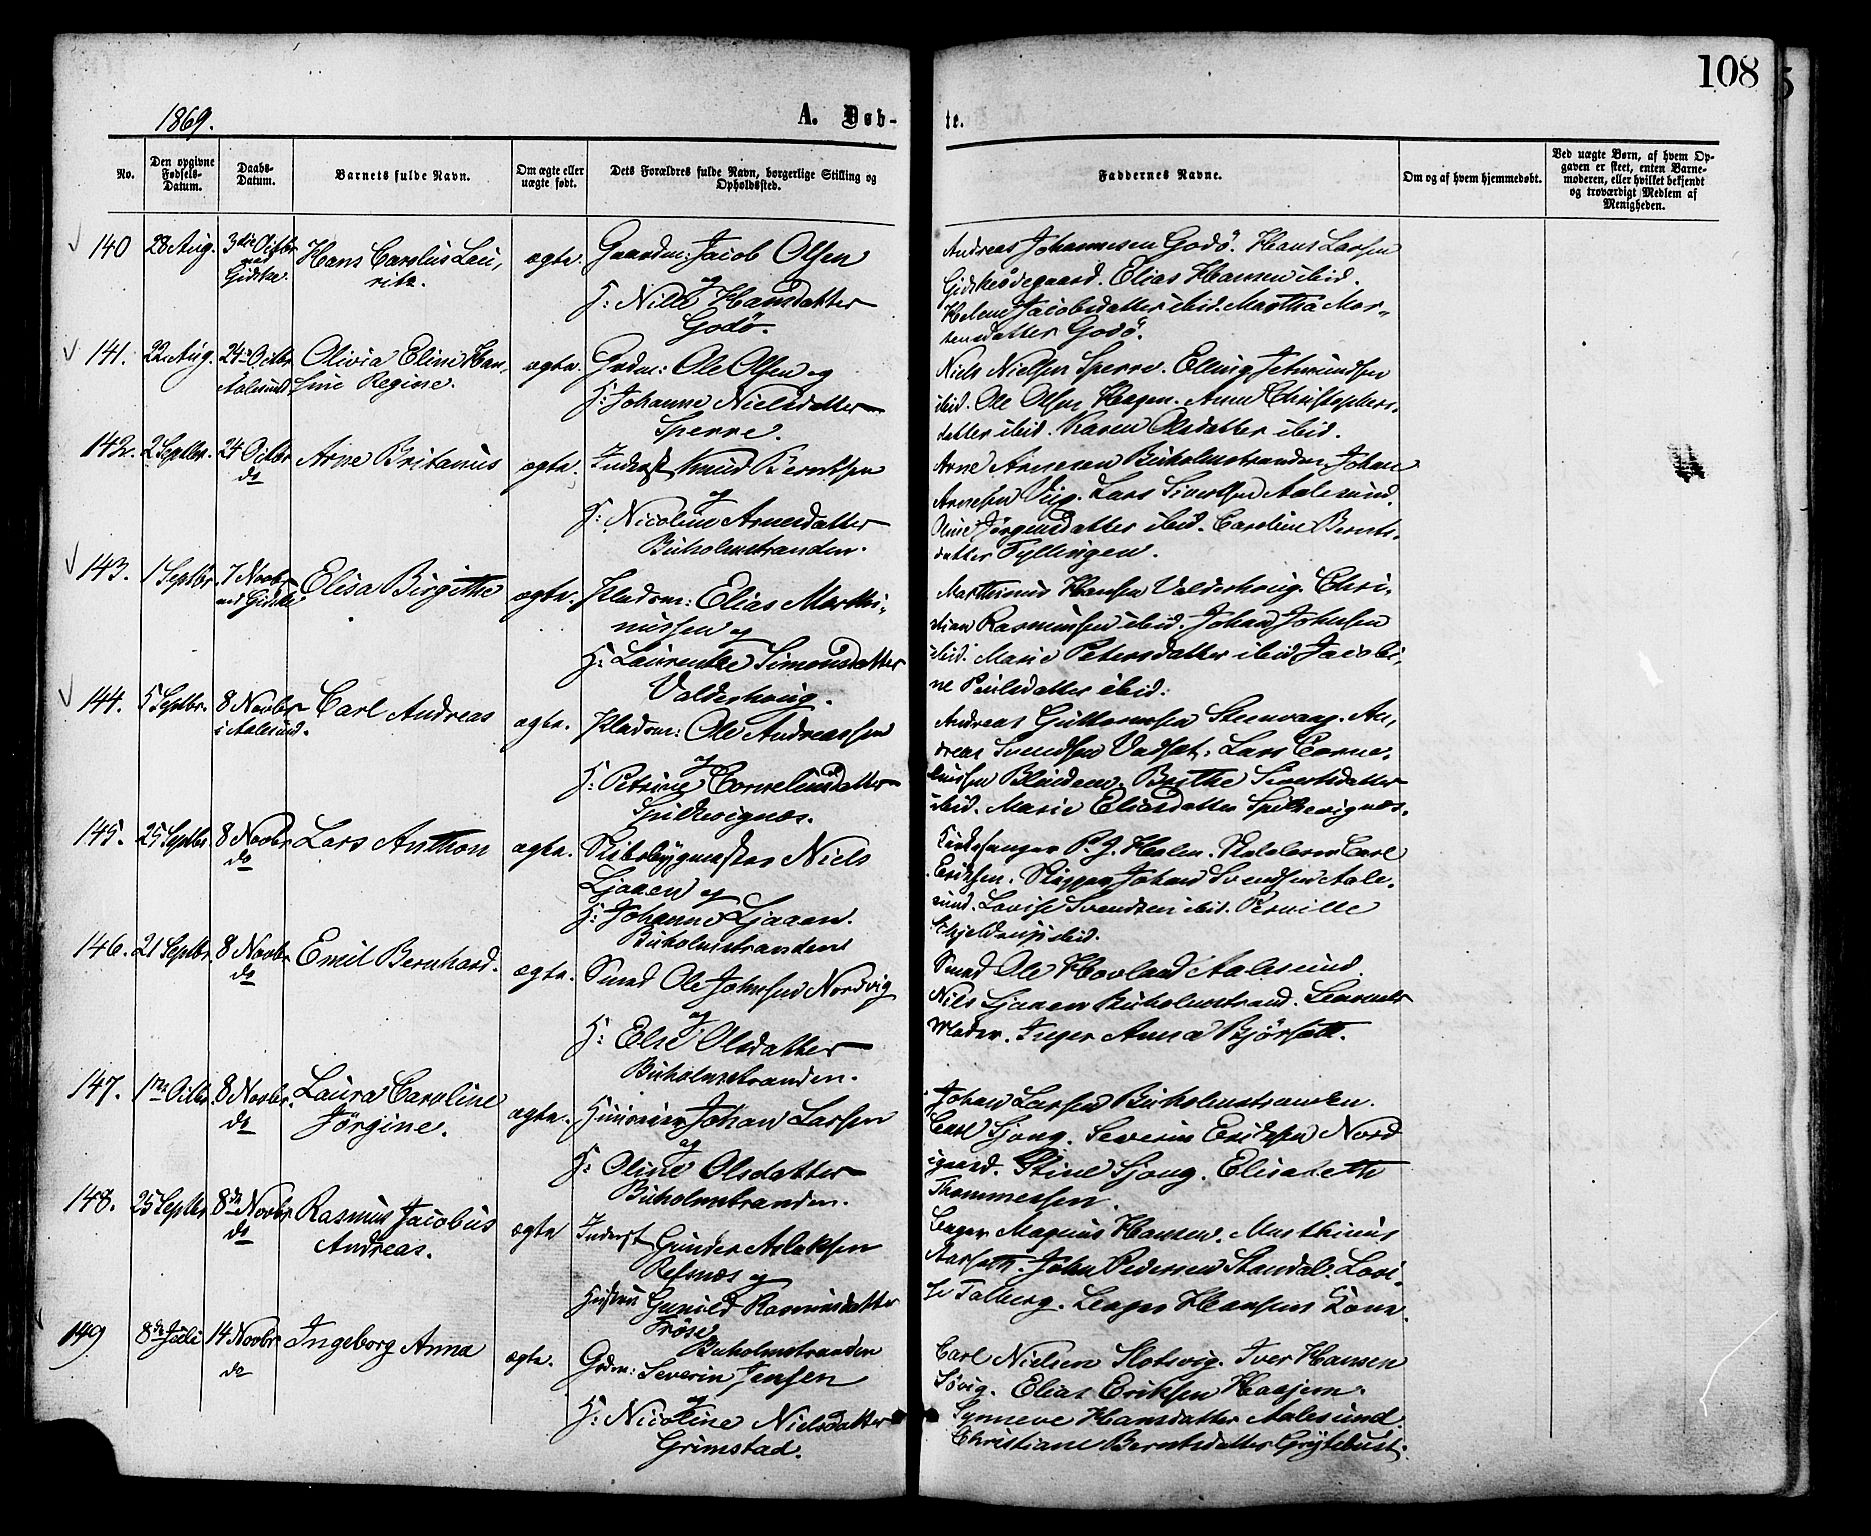 108
1869.
A. Døb-
te.
No.
Den opgivne Fødsels-Datum.
Daabs-Datum.
Barnets fulde Navn.
Om ægte eller uægte født.
Dets Forældres fulde Navn, borgerlige Stilling og Opholdssted.
Faddernes Navne.
Om og af hvem hjemmedøbt.
Ved uægte Børn, af hvem Opgaven er skeet, enten Barnemoderen, eller hvilket bekjendt og troværdigt Medlem af Menigheden.
140 28 Aug. 3die Octbr ved Gidske. Hans Carolus Lauritz. ægte. Gaardm: Jacob Olsen
og
H: Nille Hansdatter
Godø.
Andreas Johannesen Godø. Hans Larsen
Gidskeødegaard. Elias Hansen ibid.
Helene Jacobsdatter ibid. Martha Mor-
tensdatter Godø.
141. 22 Aug. 24 Octbr Aalesund Olivia Eline Han-
sine Regine. ægte. Grdm: Ole Olsen og
H: Johanne Nielsdatter
Sperre.
Niels Nielsen Sperre. Elling Jetmundsen
ibid. Ole Olsen Hagen. Anne Christophers-
datter ibid. Karen Olsdatter ibid.
142. 2 Septbr. 24 Octbr do Arne Britanus ægte. Inderst Knud Berntsen
og
H: Nicoline Arnesdatter
Buholmstranden.
Arne Arnesen Buholmstranden. Johan
Arnesen Viig. Lars Sivertsen Aalesund.
Oline Jørgensdatter ibid. Caroline Bernts-
datter Fyllingen.
143. 1 Septbr 7 Novbr ved Gidske Elisa Birgitte ægte. Pladsm: Elias Marthi-
nussen og
H: Laurentze Simonsdatter
Valderhoug.
Marthinus Hansen Valderhoug. Chri-
stian Rasmussen ibid. Johan Johnsen
ibid. Marie Petersdatter ibid. Jacobi-
ne Poulsdatter ibid.
144. 5 Septbr. 8 Novbr i Aalesund. Carl Andreas ægte. Pladsm: Ole Andreassen
og
H: Petrine Corneliusdatter
Spilkevignæs.
Andreas Guttormsen Steenvaag. An-
dreas Svendsen Vadset. Lars Corne-
liussen Blindem. Brithe Sivertsdatter
ibid. Marie Eliasdatter Spilkevignæs.
145. 25 Septbr 8 Novbr do Lars Anthon ægte. Skibsbygmester Niels
Ljaaen og
H: Johanne Ljaaen.
Buholmstranden
Kirkesanger P. J. Holm. Carl
Eriksen. Skipper Johan Svendsen Aale-
sund. Lovise Svendsen ibid. Pernille
Schjeldrup ibid.
146. 21 Septbr. 8 Novbr do Emil Bernhard. ægte. Smed Ole Johnsen Nordvig
og
H: Else Olsdatter
Buholmstranden.
Smed Ole Hovland Aalesund.
Nils Ljaaen Buholmstrand.
Inger Anna Bjørseth.
147. 1ste Octbr 8 Novbr. do Laura Caroline
Jørgine. ægte. Johan Larsen
og
H: Oline Olsdatter
Buholmstranden.
Johan Larsen Buholmstranden.
Carl Sjong. Severin Eriksen Nord
igaard. Stine Sjong. Elisabeth
Thommessen.
148. 25 Septbr 8de Novbr do Rasmus Jacobus
Andreas. ægte Inderst Gunder Aslaksen
Refsnæs og
Hustru Gunild Rasmusdatter
Frøse
Buholmstranden
Magnus Hansen. Marthinus
Aarseth. John Pedersen Standal. Lovi-
se Talberg. Hansens Kone.
149 8de Juli 14 Novbr do Ingeborg Anna ægte. Grdm: Severin Jensen
og
H: Nicoline Nielsdatter
Grimstad.
Carl Nielsen Slotsvig. Iver Hansen
Søvig. Elias Eriksen Haajem.
Synneve Hansdatter Aalesund.
Christiane Berntsdatter Grytebust.